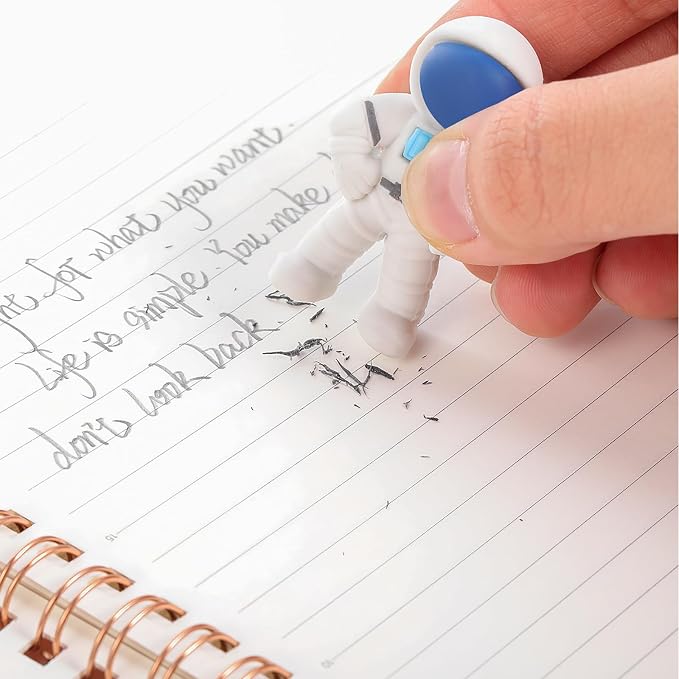 for what you want.
Life is simple. You make
don't look back